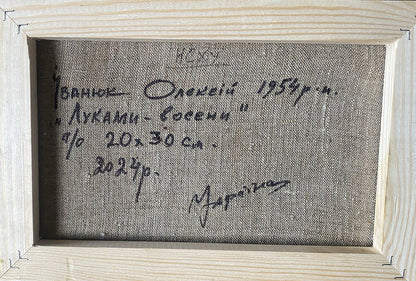 НСХУ
Іванюк Олексій 1954р.н.
„Луками-восени"
п/о 20х30 см.
2024р.
Україна